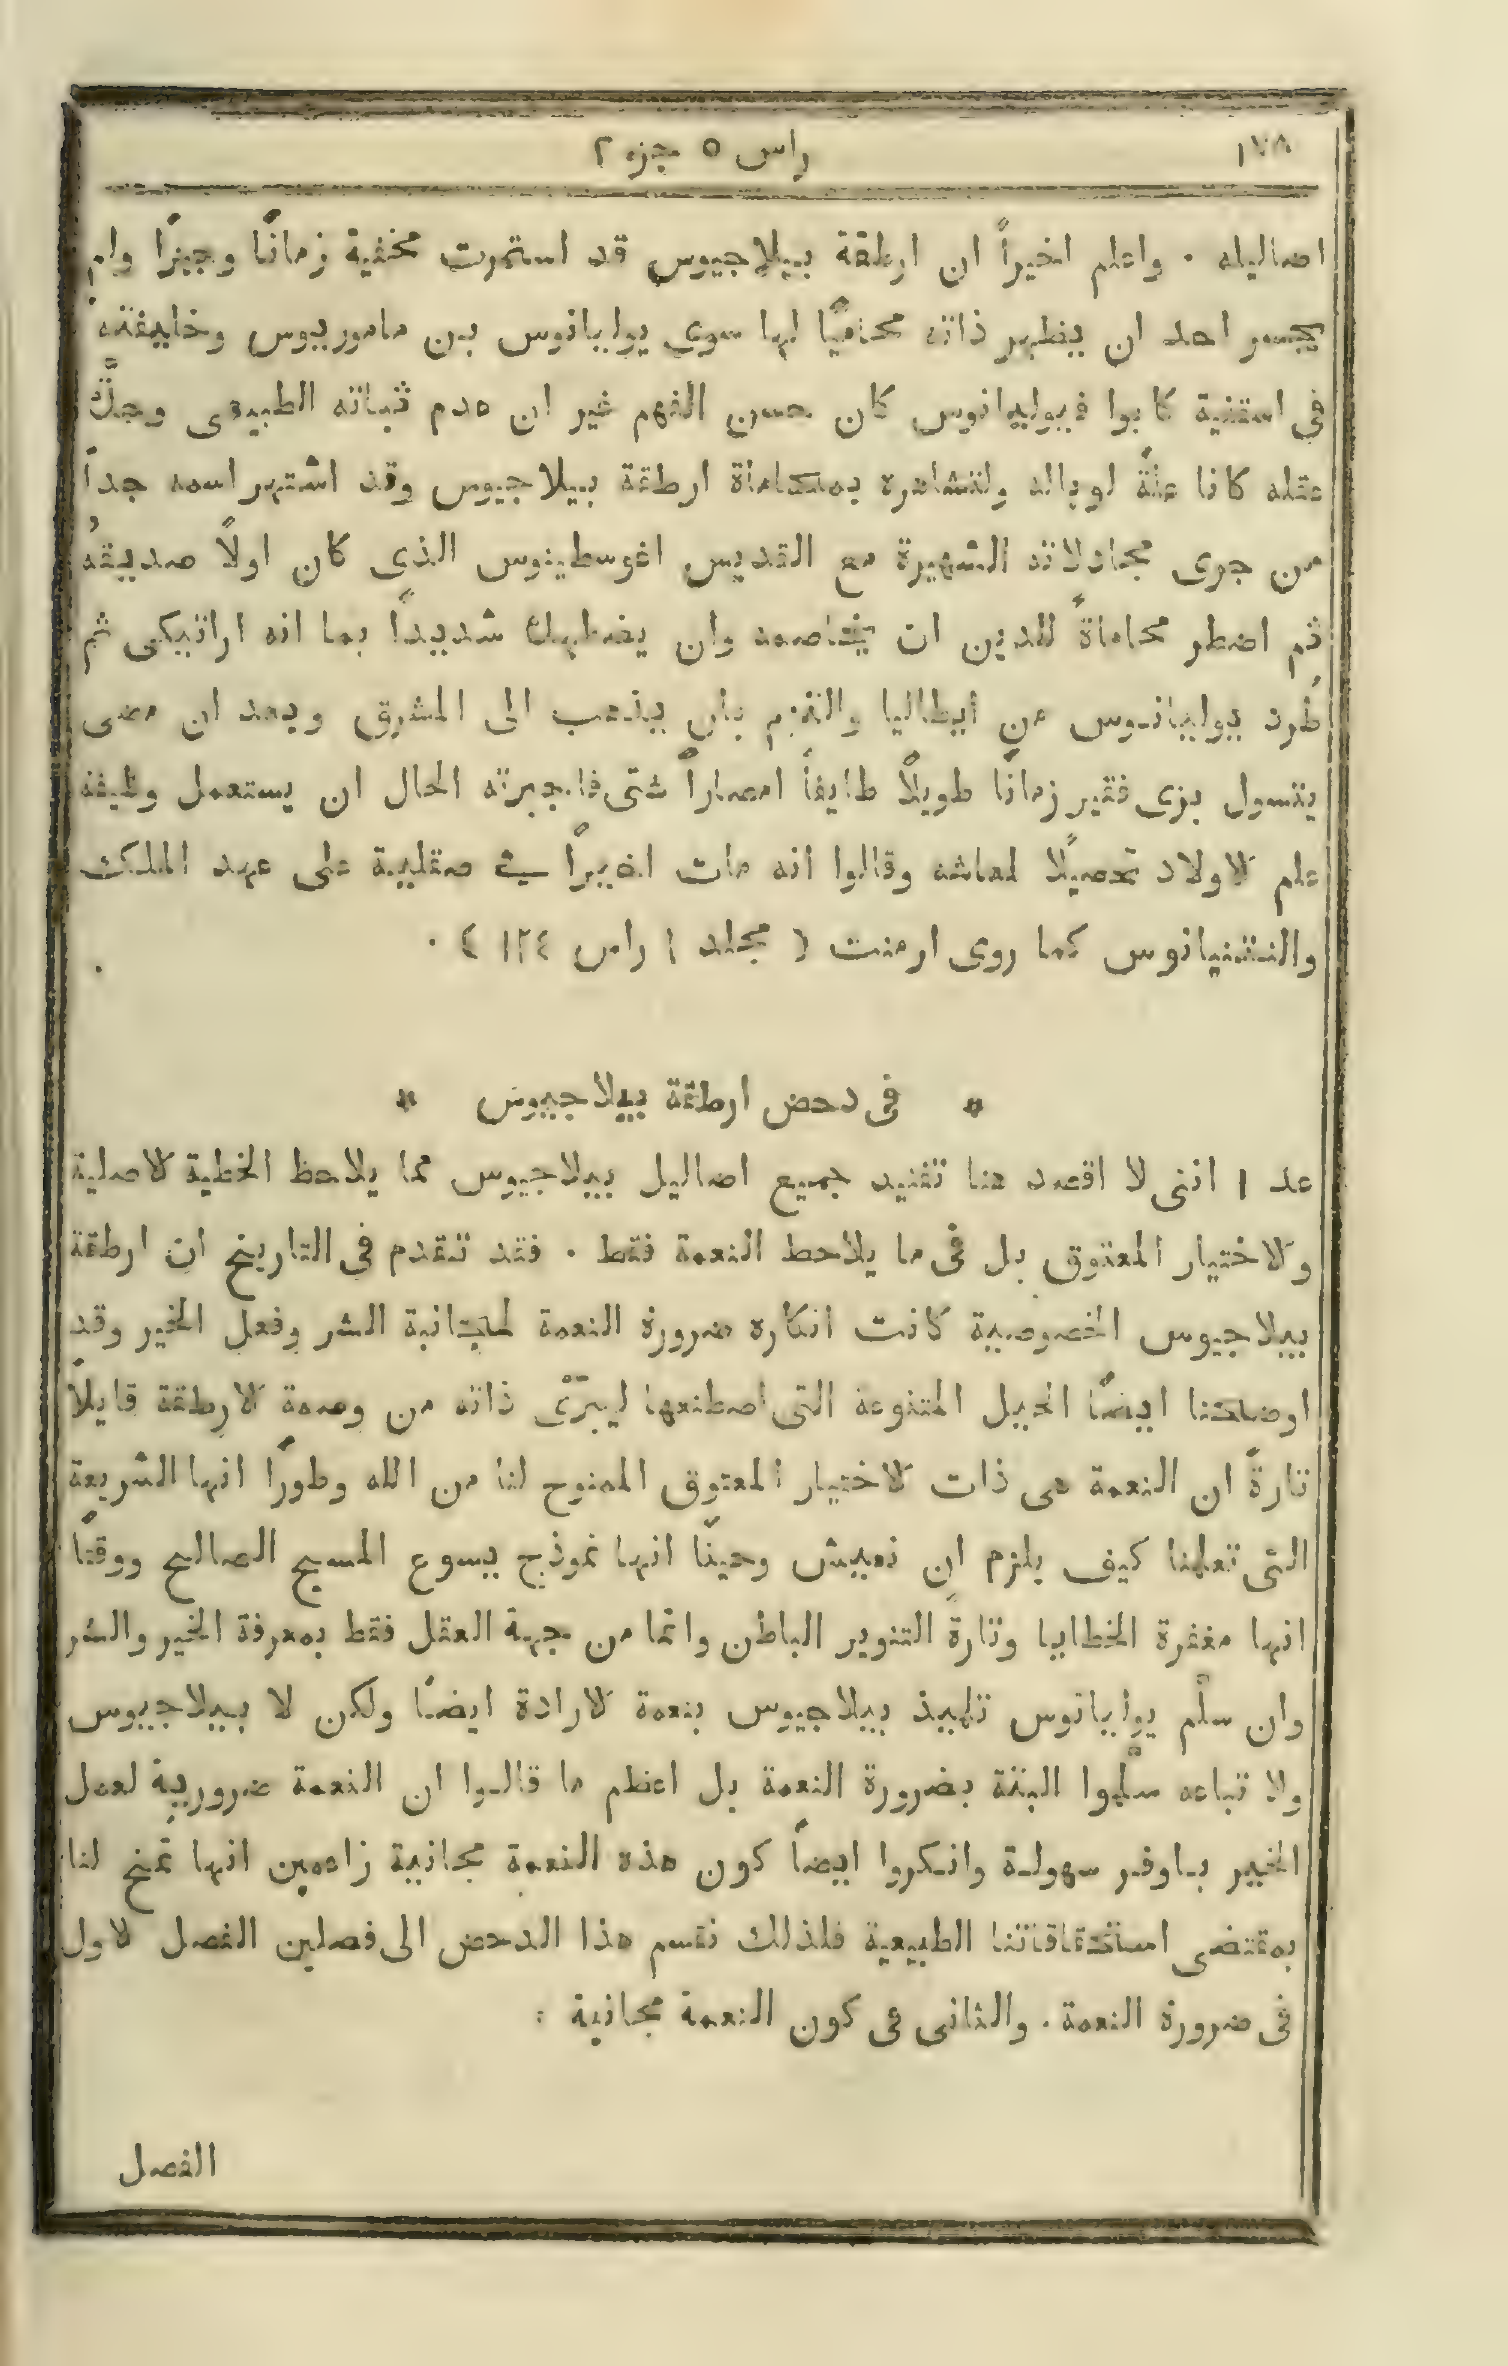 ١٧٨ راس ٥ جزء ٢
اضاليله . واعلم اخيراً ان ارطقة بيلاجيوس قد استمرت مخفية زمانًا وجيزًا ولم
يجسر احد ان يظهر ذاته محاميًا لها سوى يوليانوس بن ماموريوس وخليفته
في اسقفية كابوا فيوليانوس كان حسن الفهم غير ان عدم ثباته الطبيعى وحدّة
عقله كانا علةً لوباله ولتشاهره بمحاماة ارطقة بيلاجيوس وقد اشتهر اسمه جداً
من جرى مجادلاته الشهيرة مع القديس اغوسطينوس الذى كان اولاً صديقهُ
ثم اضطر محاماةً للدين ان يخاصمه وان يضطهده شديداً بما انه اراتيكى ثم
طُرد يوليانوس من ايطاليا والتزم بان يذهب الى المشرق وبعد ان مضى
يتسول بزى فقير زمانًا طويلًا طايفاً امصاراً شتى فاجبرته الحال ان يستعمل وظيفة
علم الاولاد تحصيلًا لمعاشه وقالوا انه مات اخيراً في صقلية على عهد الملك
والنتنيانوس كما روى ارمنت ( مجلد ١ راس ١٢٤ ) .
* فى دحض ارطقة بيلاجيوس *
عد ١ اننى لا اقصد هنا تفنيد جميع اضاليل بيلاجيوس مما يلاحظ الخطية الاصلية
والاختيار المعتوق بل فى ما يلاحظ النعمة فقط . فقد تقدم فى التاريخ ان ارطقة
بيلاجيوس الخصوصية كانت انكاره ضرورة النعمة لمجانبة الشر وفعل الخير وقد
اوضحنا ايضًا الحيل المتنوعة التى اصطنعها ليبرّئ ذاته من وصمة الارطقة قايلاً
تارةً ان النعمة هى ذات الاختيار المعتوق الممنوح لنا من الله وطورًا انها الشريعة
التى تعلمنا كيف يلزم ان نعيش وحينًا انها نموذج يسوع المسيح الصالح ووقتًا
انها مغفرة الخطايا وتارةً التنوير الباطن وانما من جهة العقل فقط بمعرفة الخير والشر
وان سلّم يوليانوس تلميذ بيلاجيوس بنعمة الارادة ايضًا ولكن لا بيلاجيوس
ولا تباعه سلّموا البتة بضرورة النعمة بل اعظم ما قالوا ان النعمة ضرورية لعمل
الخير باوفر سهولة وانكروا ايضاً كون هذه النعمة مجانية زاعمين انها تمنح لنا
بمقتضى استحقاقاتنا الطبيعية فلذلك نقسم هذا الدحض الى فصلين الفصل الاول
فى ضرورة النعمة . والثانى فى كون النعمة مجانية :
الفصل